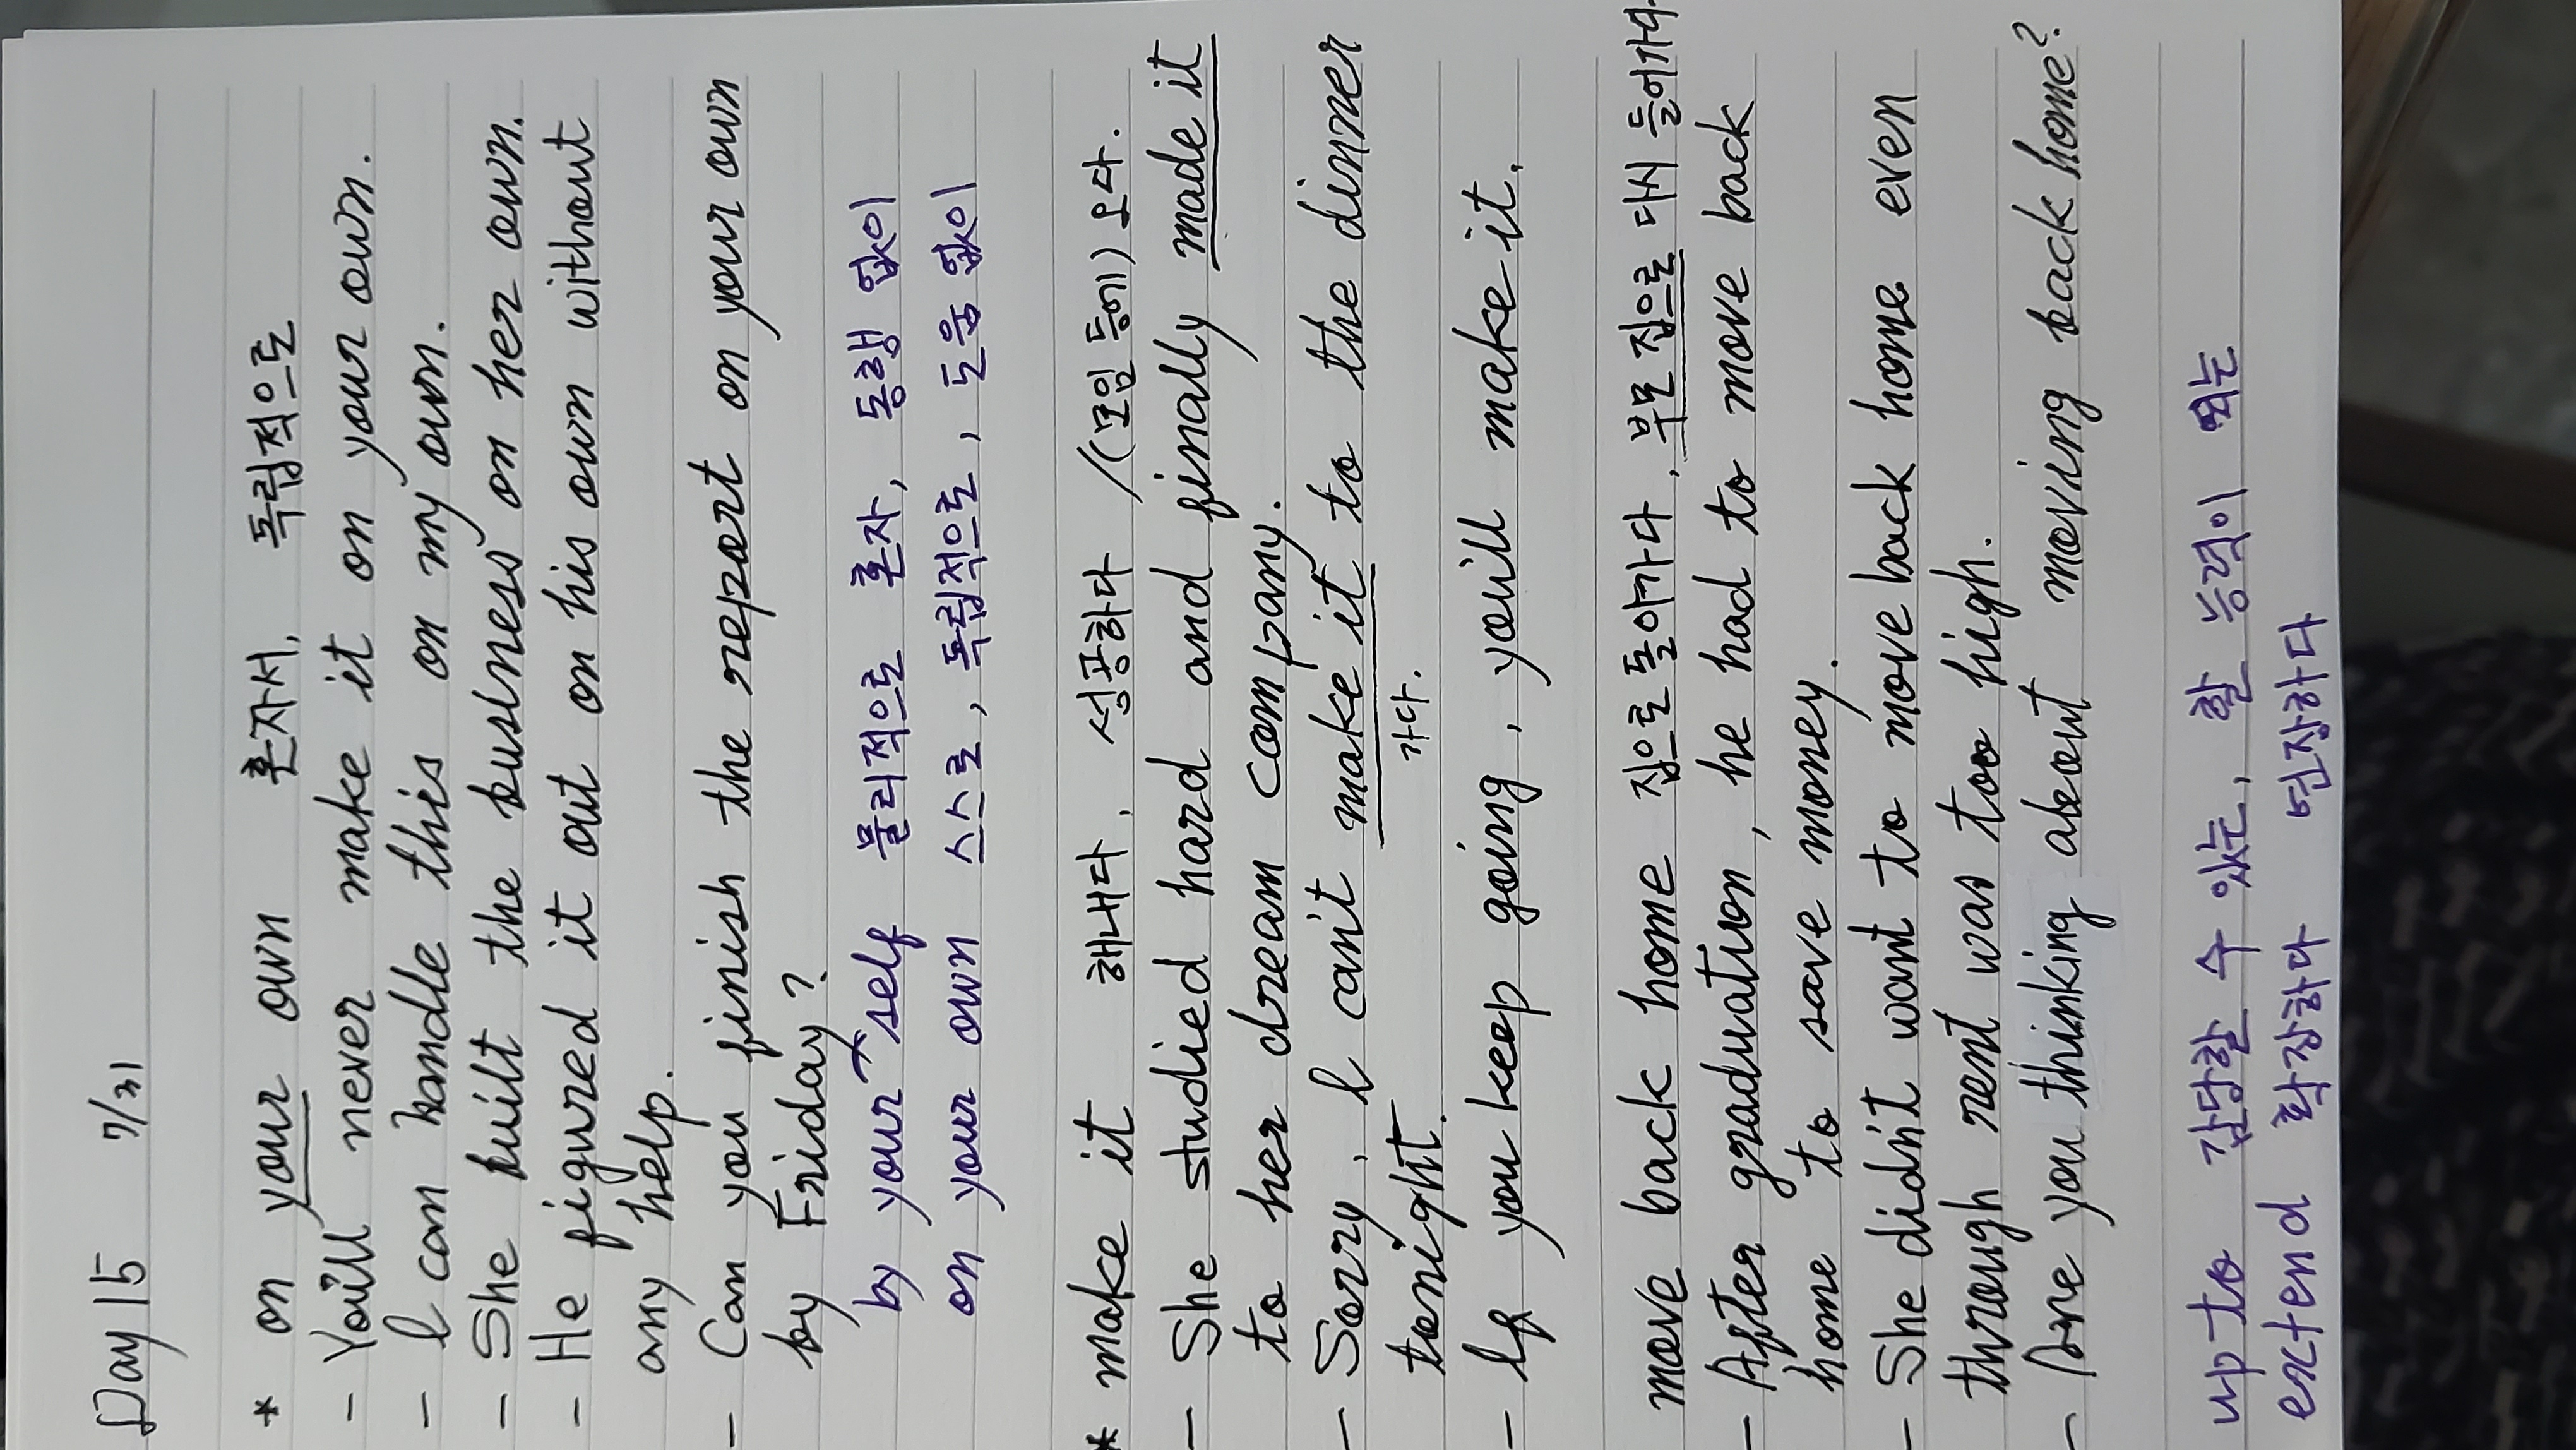 Day 15 7/31
* on your own 혼자서, 독립적으로
- You'll never make it on your own.
- I can handle this on my own.
- She built the business on her own.
- He figured it out on his own without
any help.
- Can you finish the report on your own
by Friday?
by your self 물리적으로 혼자, 동행 없이
on your own 스스로, 독립적으로, 도움 없이
* make it 해내다, 성공하다 / (모임 등에) 오다.
- She studied hard and finally made it
to her dream company.
- Sorry, I can't make it to the dinner
가다.
tonight.
- If you keep going, you'll make it.
move back home 집으로 돌아가다, 부모 집으로 다시 들어가다.
- After graduation, he had to move back
home to save money.
- She didn't want to move back home even
through rent was too high.
- Are you thinking about moving back home?
up to 감당할 수 있는, 할 능력이 되는
extend 확장하다 연장하다